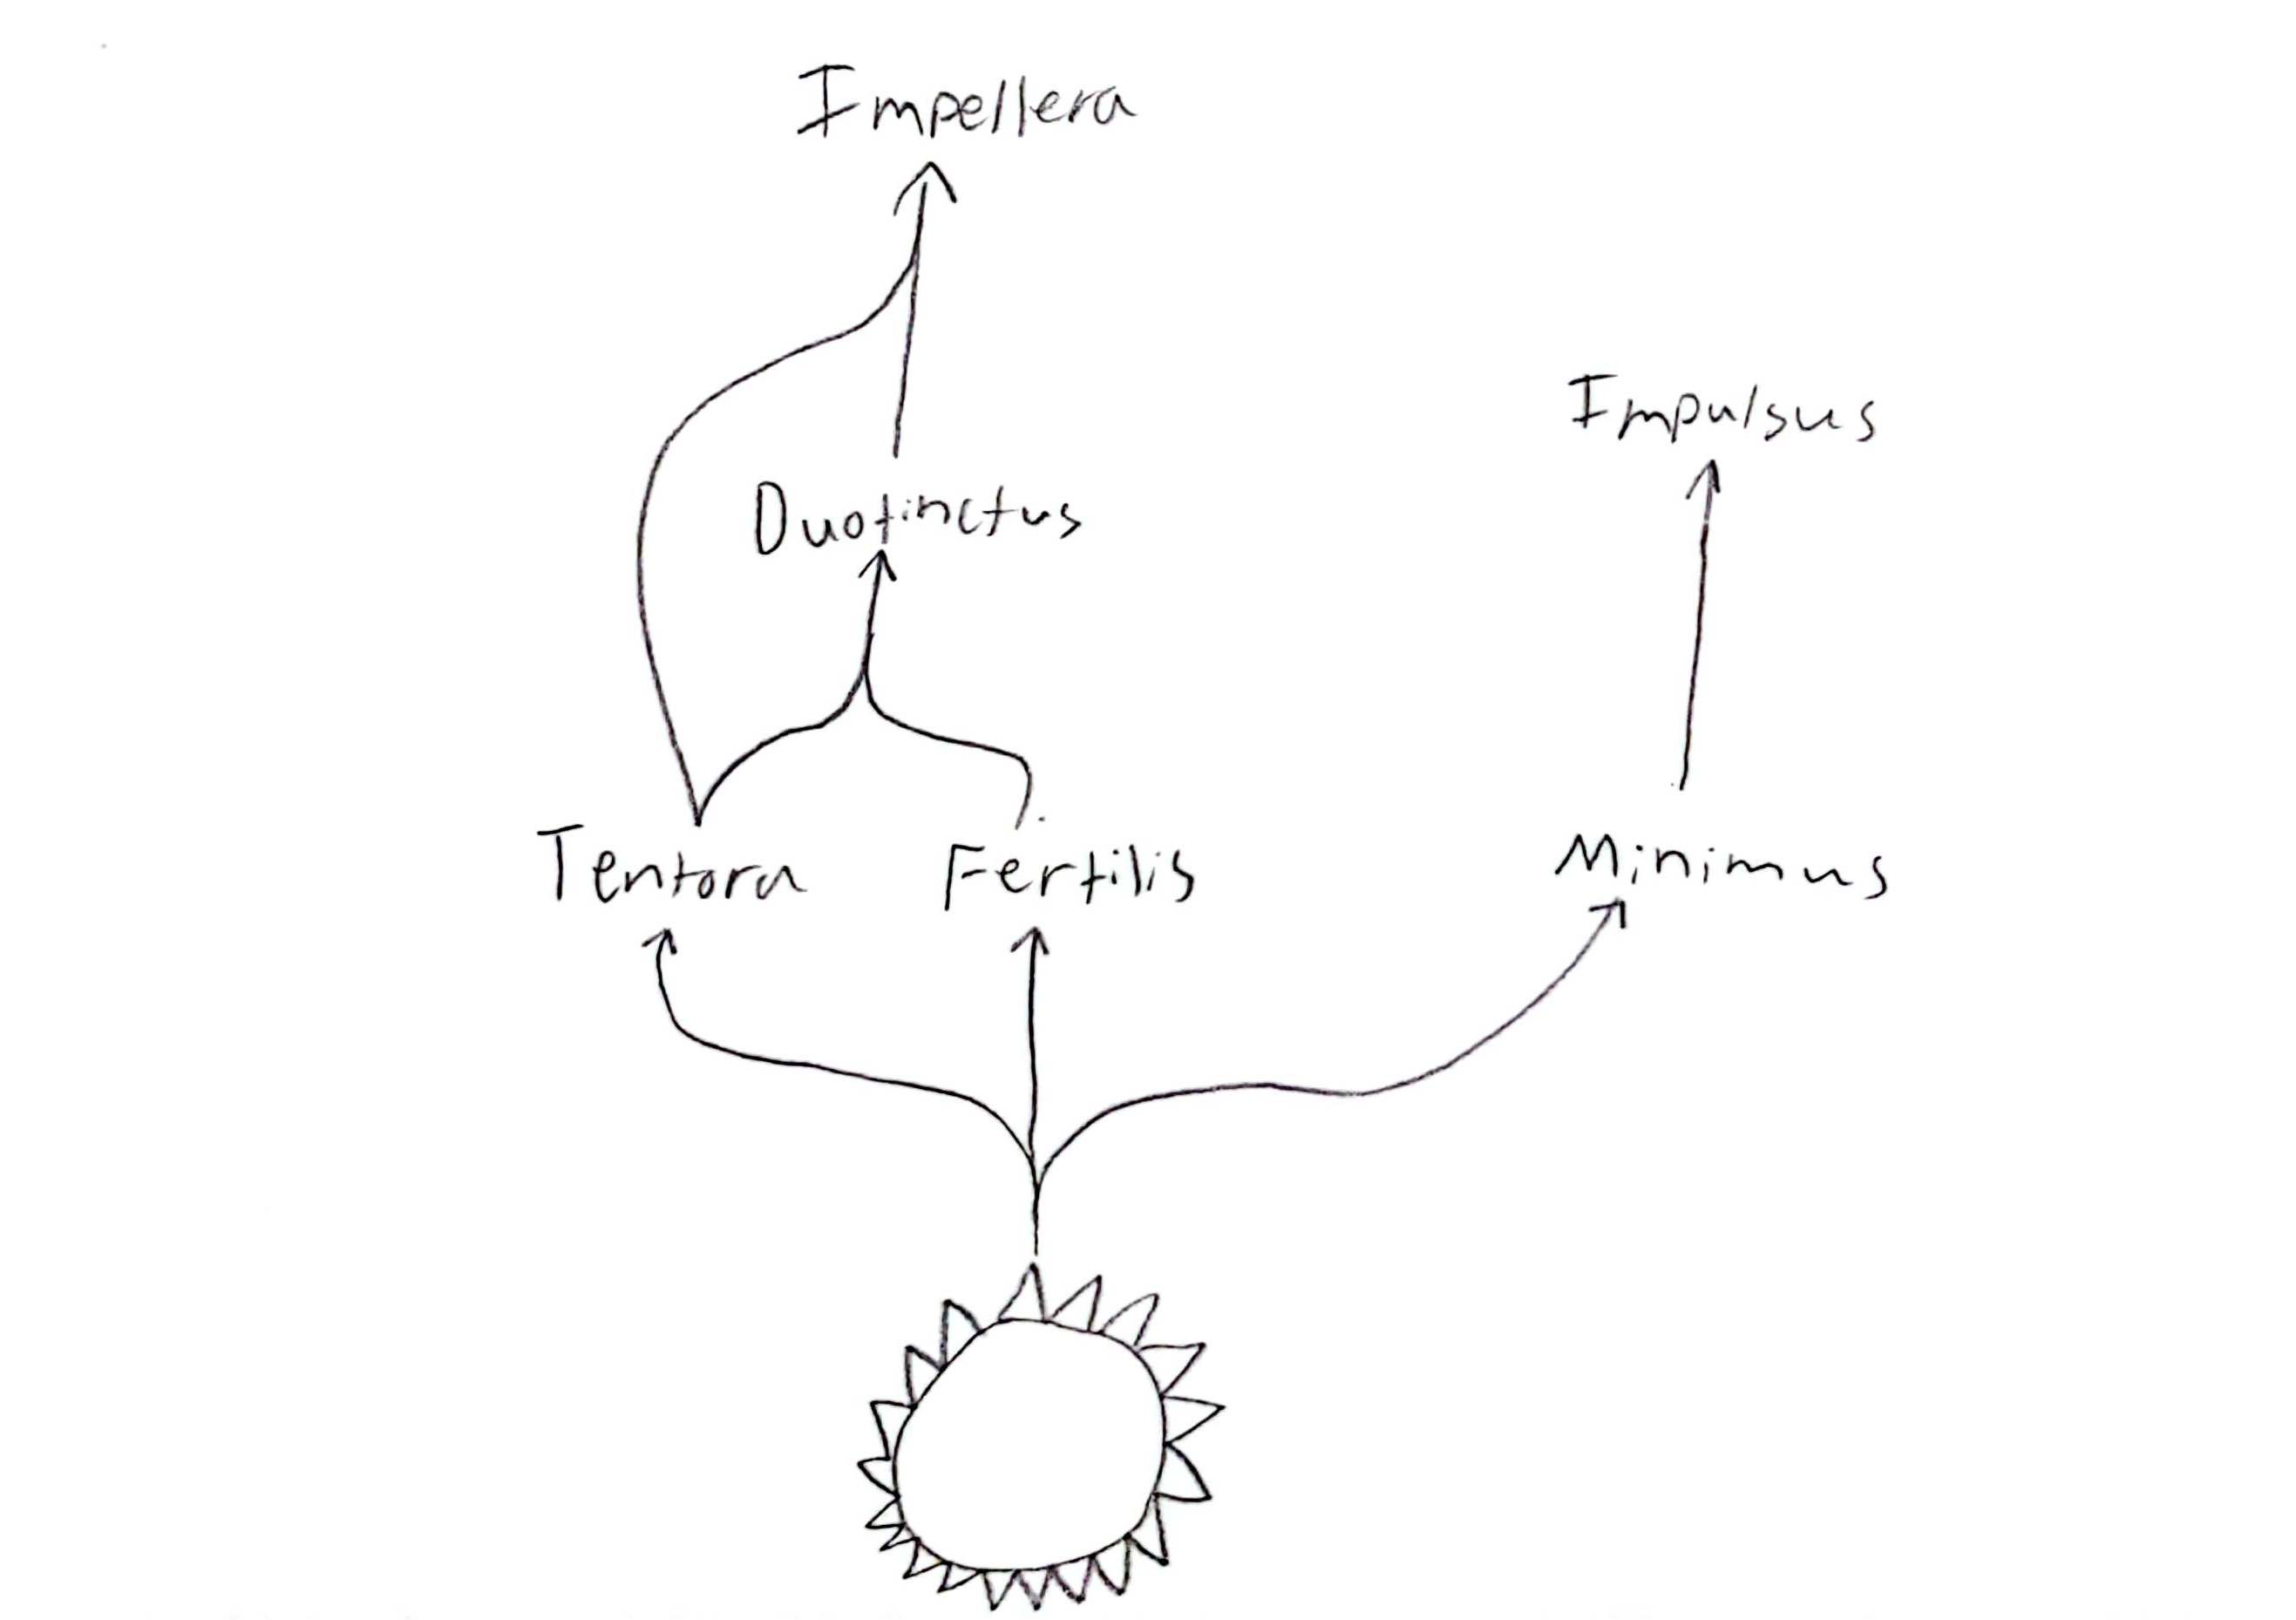 Impellera
Impulsus
Duotinctus
Tentora Fertilis Minimus